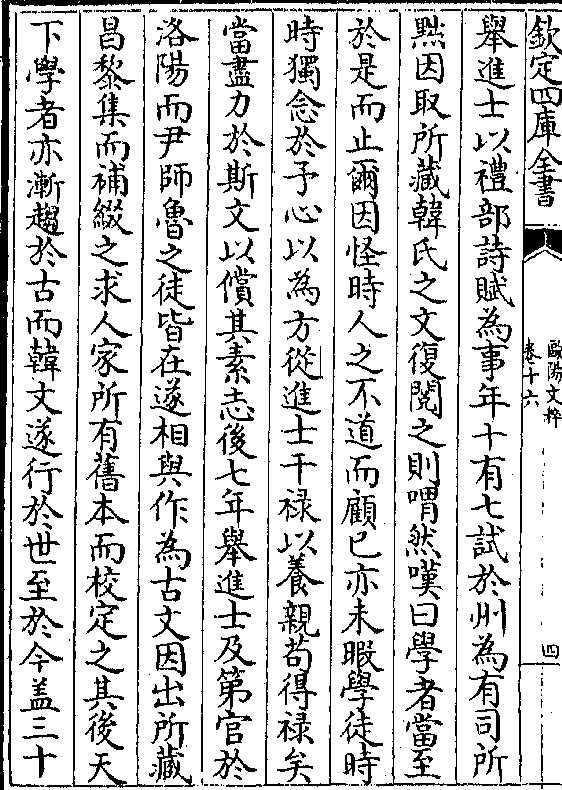 欽定四庫全書
歐陽文粹
卷十六
四
舉進士以禮部詩賦為事年十有七試於州為有司所
黜因取所藏韓氏之文復閱之則喟然嘆曰學者當至
於是而止爾因怪時人之不道而顧已亦未暇學徒時
時獨念於予心以為方從進士干禄以養親茍得禄矣
當盡力於斯文以償其素志後七年舉進士及第官於
洛陽而尹師魯之徒皆在遂相與作為古文因出所藏
昌黎集而補綴之求人家所有舊本而校定之其後天
下學者亦漸趨於古而韓文遂行於世至於今盖三十